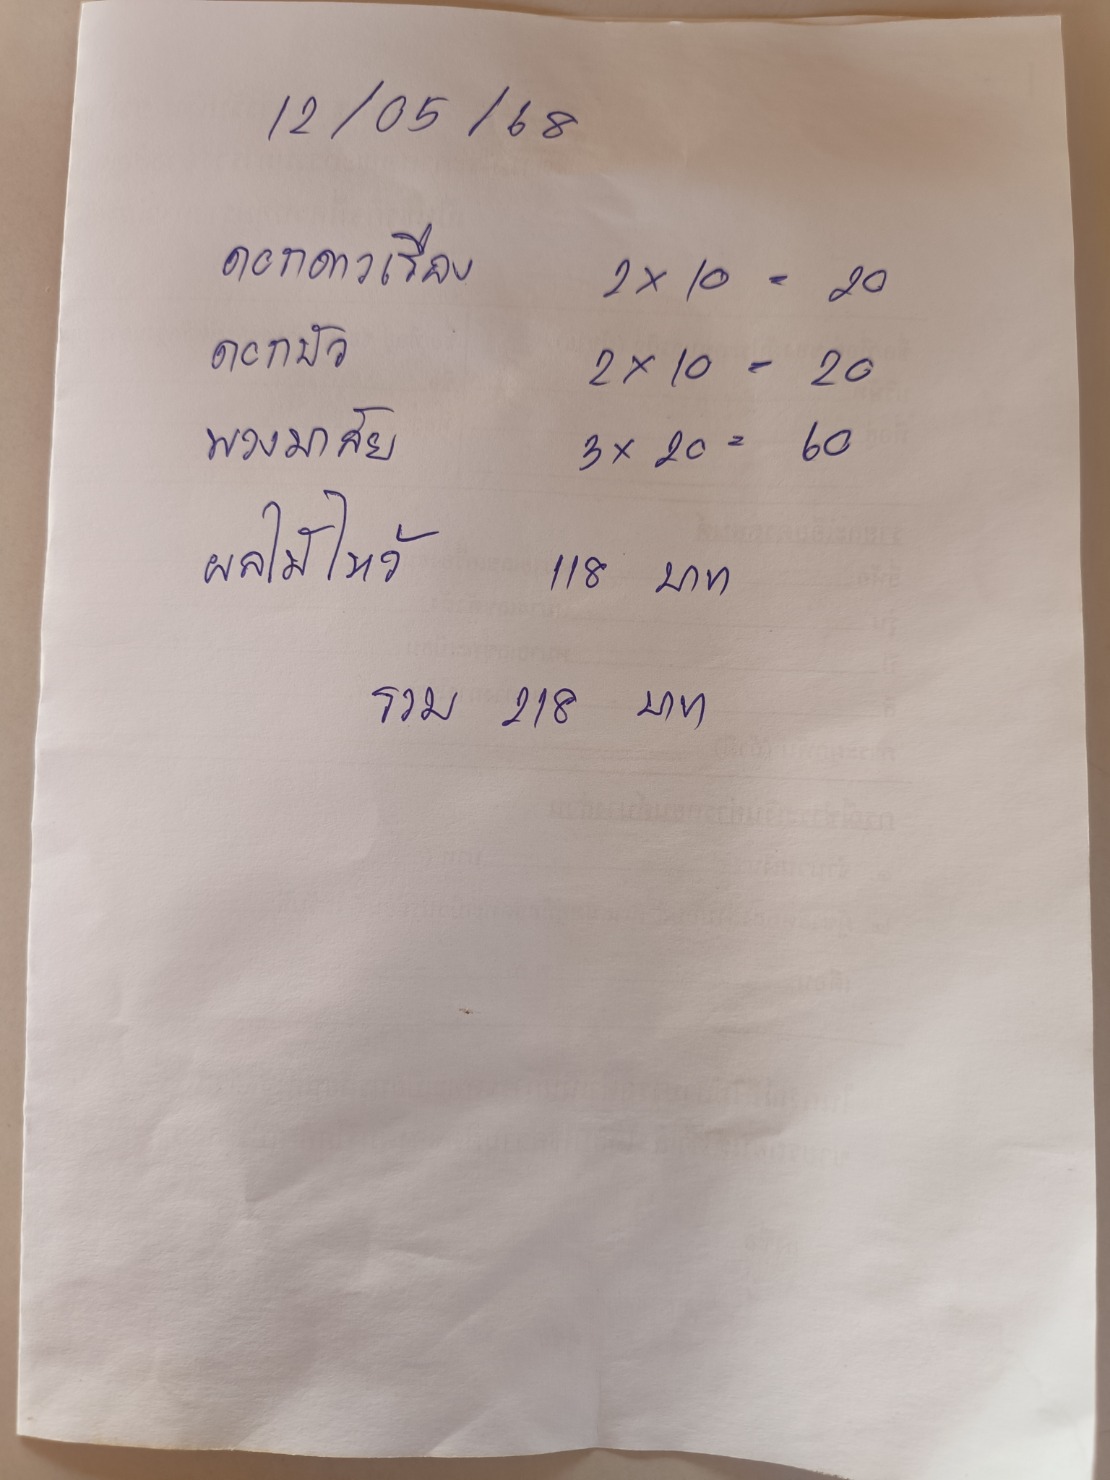 12/05/68
ดอกดาวเรือง 2 x 10 = 20
ดอกบัว 2 x 10 = 20
พวงมาลัย 3 x 20 = 60
ผลไม้ไหว้ 118 บาท
รวม 218 บาท